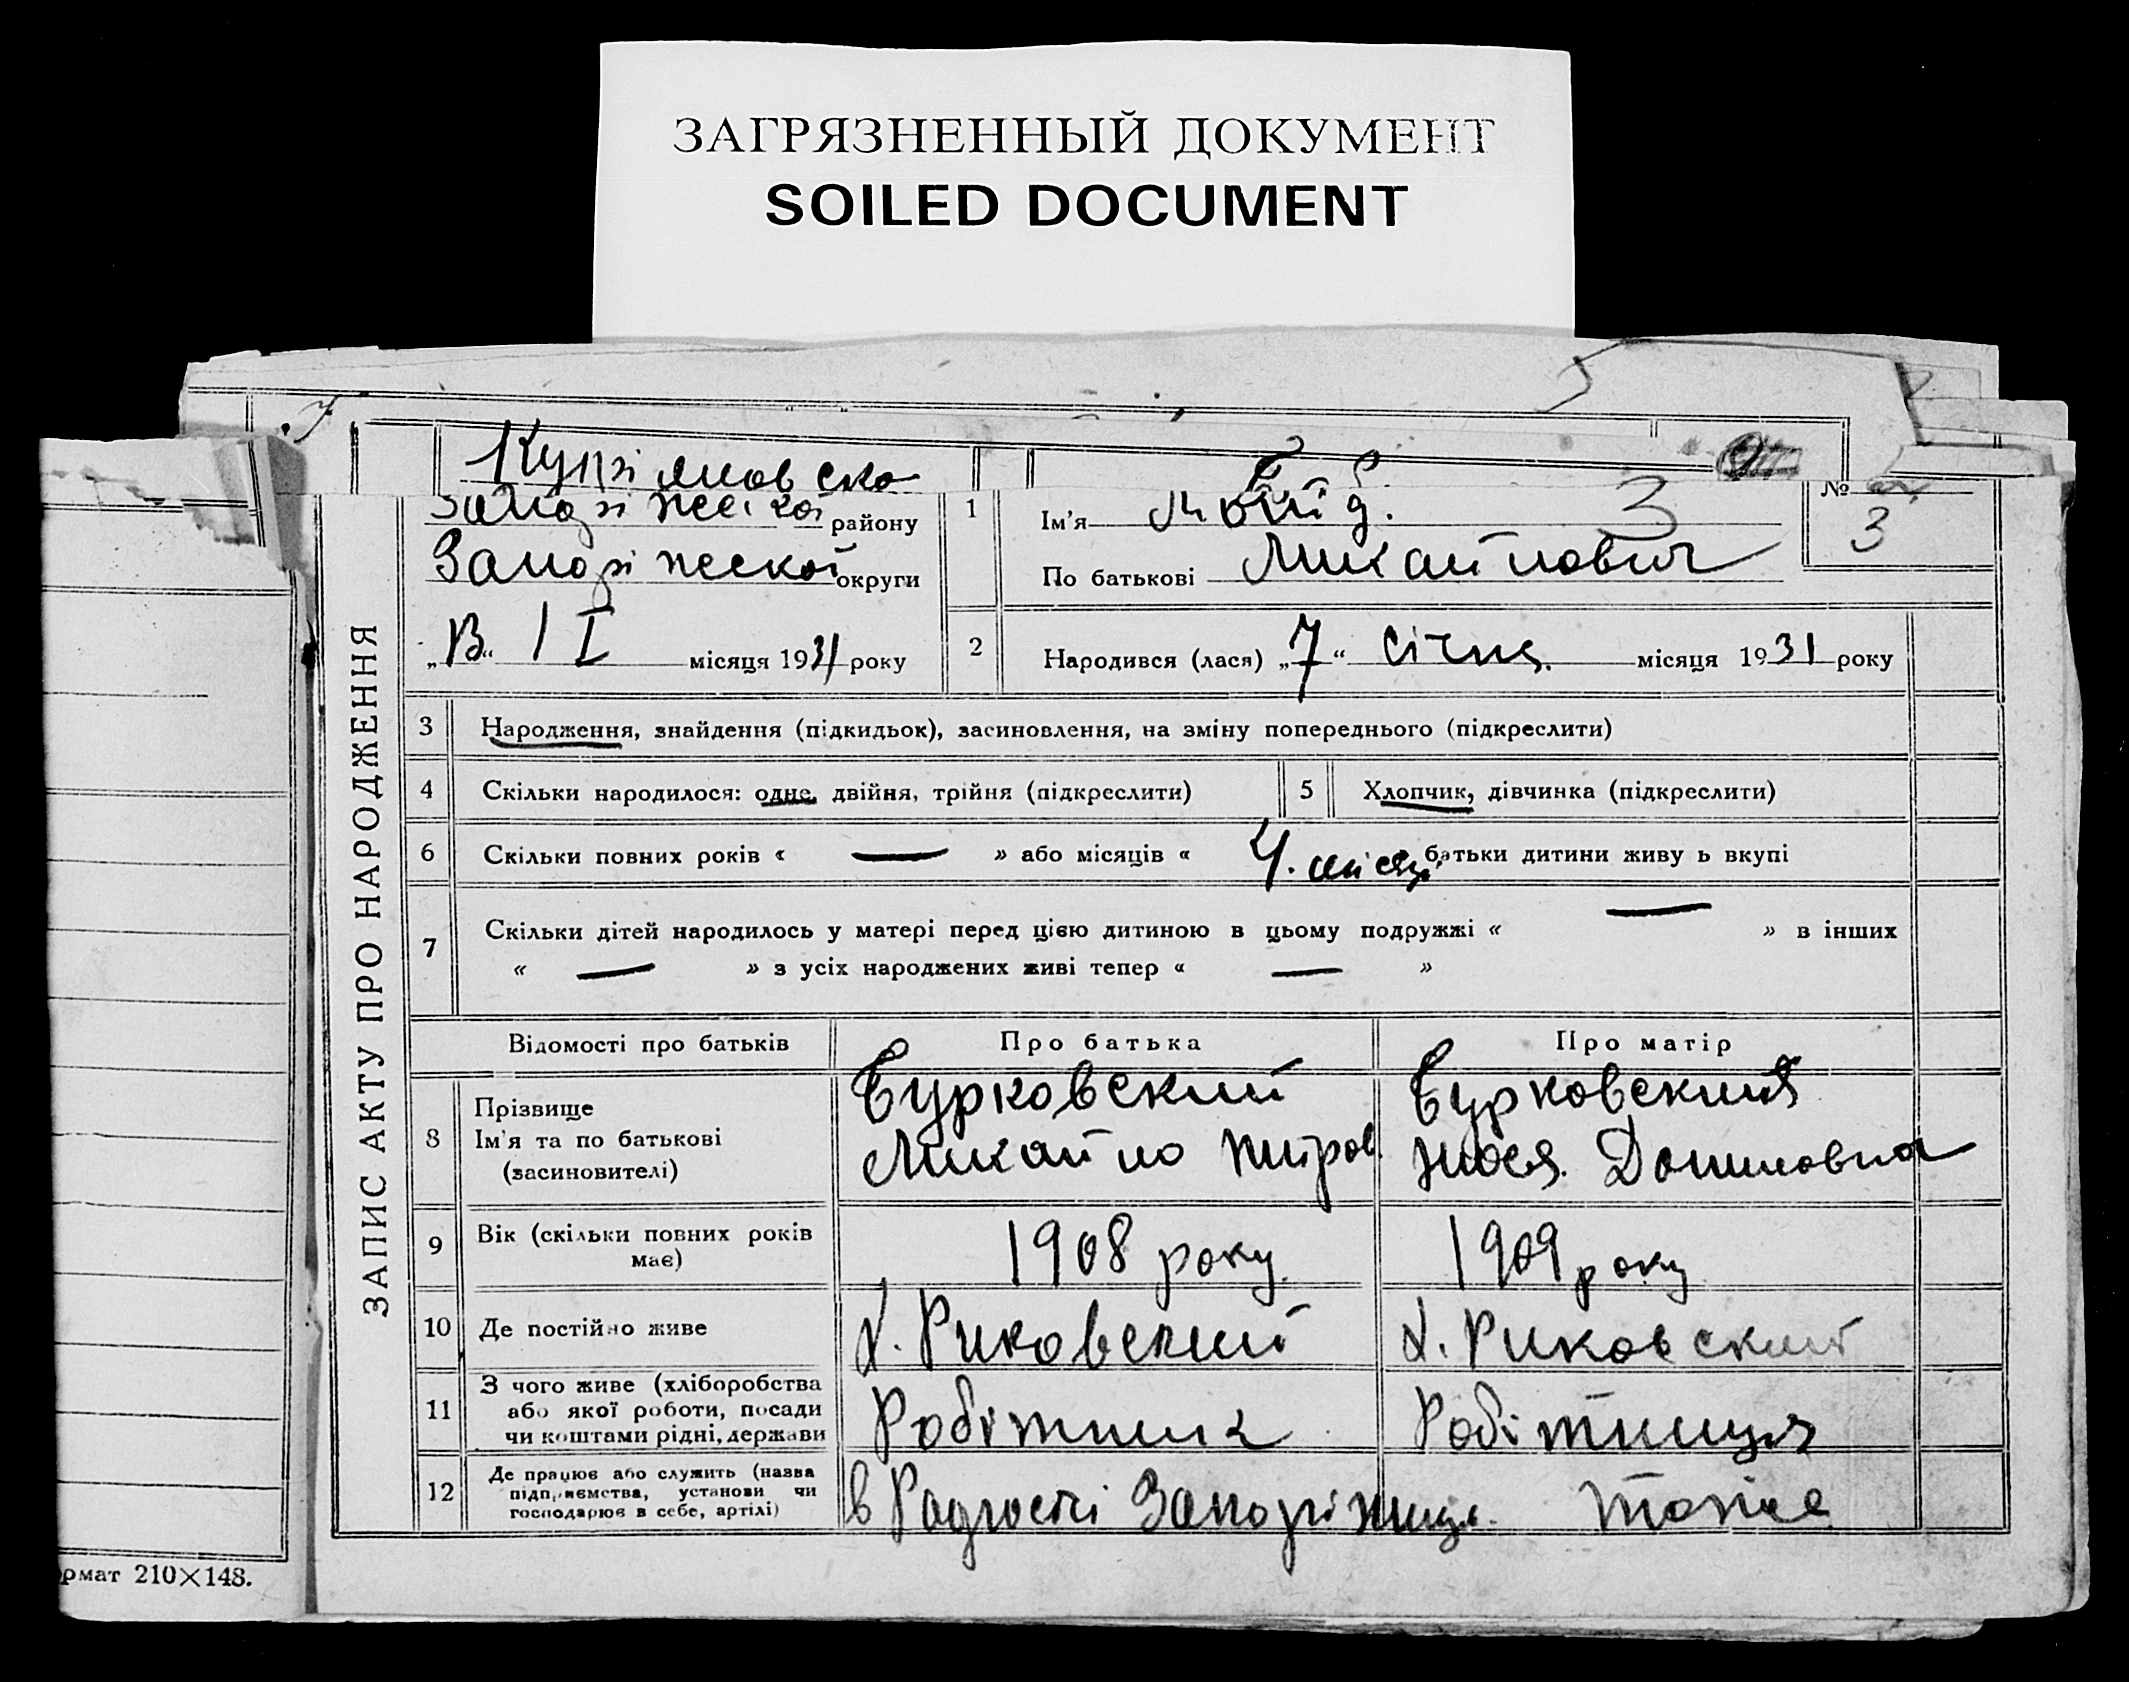 ЗАГРЯЗНЕННЫЙ ДОКУМЕНТ
SOILED DOCUMENT
ЗАПИС АКТУ ПРО НАРОДЖЕННЯ
району
округи
місяця 1931 року
1
Ім'я
3
По батькові Михайлович
№
3
2
Народився (лася) „7“ січня. місяця 1931 року
3 Народження, знайдення (підкидьок), засиновлення, на зміну попереднього (підкреслити)
4 Скільки народилося: одне, двійня, трійня (підкреслити)
5 Хлопчик, дівчинка (підкреслити)
6 Скільки повних років « — » або місяців « 4. місяці батьки дитини живу ь вкупі
7 Скільки дітей народилось у матері перед цією дитиною в цьому подружжі « — » в інших
« — » з усіх народжених живі тепер « — »
Відомості про батьків
Про батька
Про матір
8
Прізвище
Ім'я та по батькові
(засиновителі)
Бурковский
Михайло
Бурковский
9
Вік (скільки повних років
має)
1908 року
1909 року
10 Де постійно живе
х. Риковский
х. Риковский
11
З чого живе (хліборобства
або якої роботи, посади
чи коштами рідні, держави
Робітник
Робітниця
12
Де працює або служить (назва
підприємства, установи чи
господарює в себе, артілі)
в Радгоспі
формат 210×148.